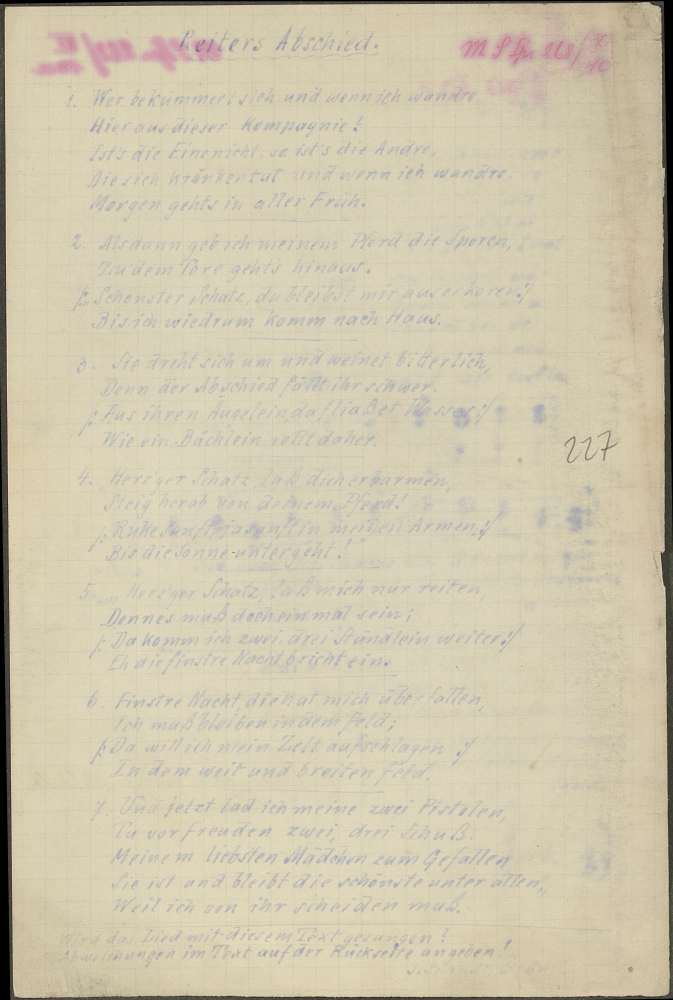 Reiters Abschied.
M S Sp. 268/
1. Wer bekümmert sich und wenn ich wandre
Hier aus dieser Kompagnie!
Ist's die Eine nicht, so ist's die Andre,
Die sich kränken tut und wenn ich wandre
Morgen gehts in aller Früh.
2. Alsdann geb ich meinem Pferd die Sporen,
Zu dem Tore gehts hinaus.
/: Schönster Schatz, du bleibst mir auserkoren :/
Bis ich wiedrum komm nach Haus.
3. Sie dreht sich um und weinet bitterlich,
Denn der Abschied fällt ihr schwer.
/: Aus ihren Äugelein da fließet Wasser :/
Wie ein Bächlein rollt daher.
227
4. Herz'ger Schatz, laß dich erbarmen,
Steig herab von deinem Pferd!
/: Ruhe sanft, ja sanft in meinen Armen :/
Bis die Sonne untergeht!
5. Herz'ger Schatz, laß mich nur reiten,
Denn es muß doch einmal sein;
/: Da komm ich zwei, drei Ständlein weiter :/
Eh die finstre Nacht bricht ein.
6. Finstre Nacht, die hat mich überfallen,
Ich muß bleiben in dem Feld;
/: Da will ich mein Zelt aufschlagen :/
In dem weit und breiten Feld.
7. Und jetzt lad ich meine zwei Pistolen,
Tu vor freuden zwei, drei Schuß.
Meinem liebsten Mädchen zum Gefallen
Sie ist und bleibt die schönste unter allen,
Weil ich von ihr scheiden muß.
Wird das Lied mit diesem Text gesungen?
Abweichungen im Text auf der Rückseite angeben!